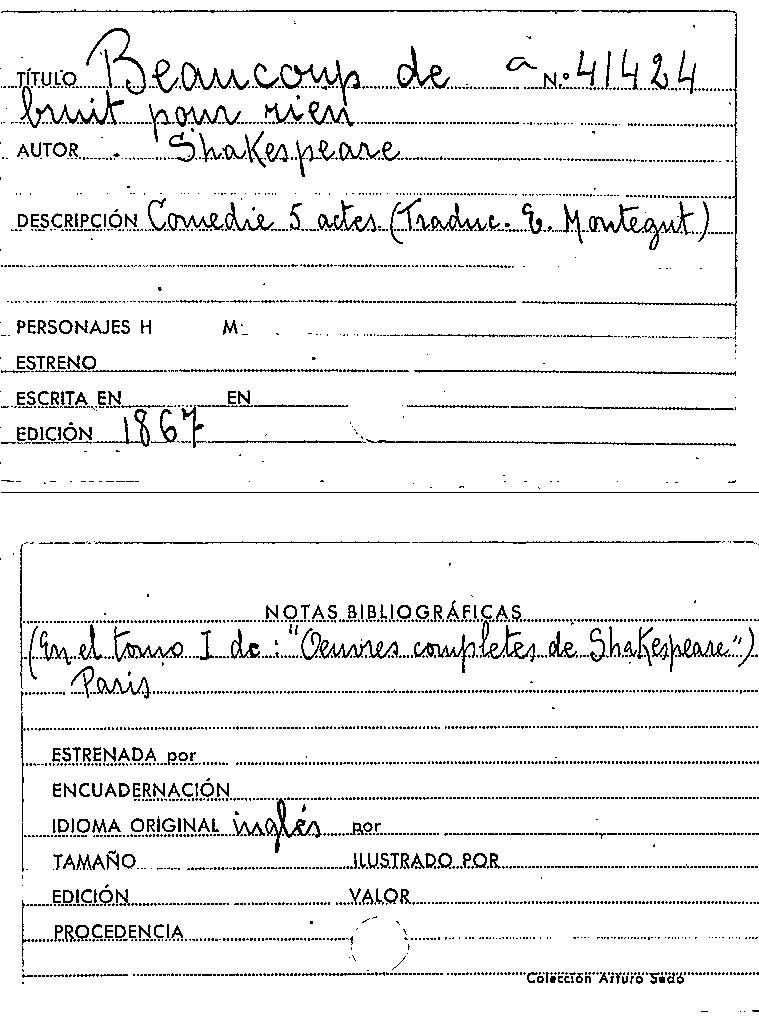 TÍTULO Beaucoup de a N.º 41424
bruit pour rien
AUTOR Shakespeare
DESCRIPCIÓN Comedie 5 actes (Traduc. E. Montegut)
PERSONAJES H M
ESTRENO
ESCRITA EN EN
EDICIÓN 1867
NOTAS BIBLIOGRÁFICAS
(En el tomo I de: "Oeuvres completes de Shakespeare")
Paris
ESTRENADA por
ENCUADERNACIÓN
IDIOMA ORIGINAL inglés por
TAMAÑO ILUSTRADO POR
EDICIÓN VALOR
PROCEDENCIA
Colección Arturo Sedó